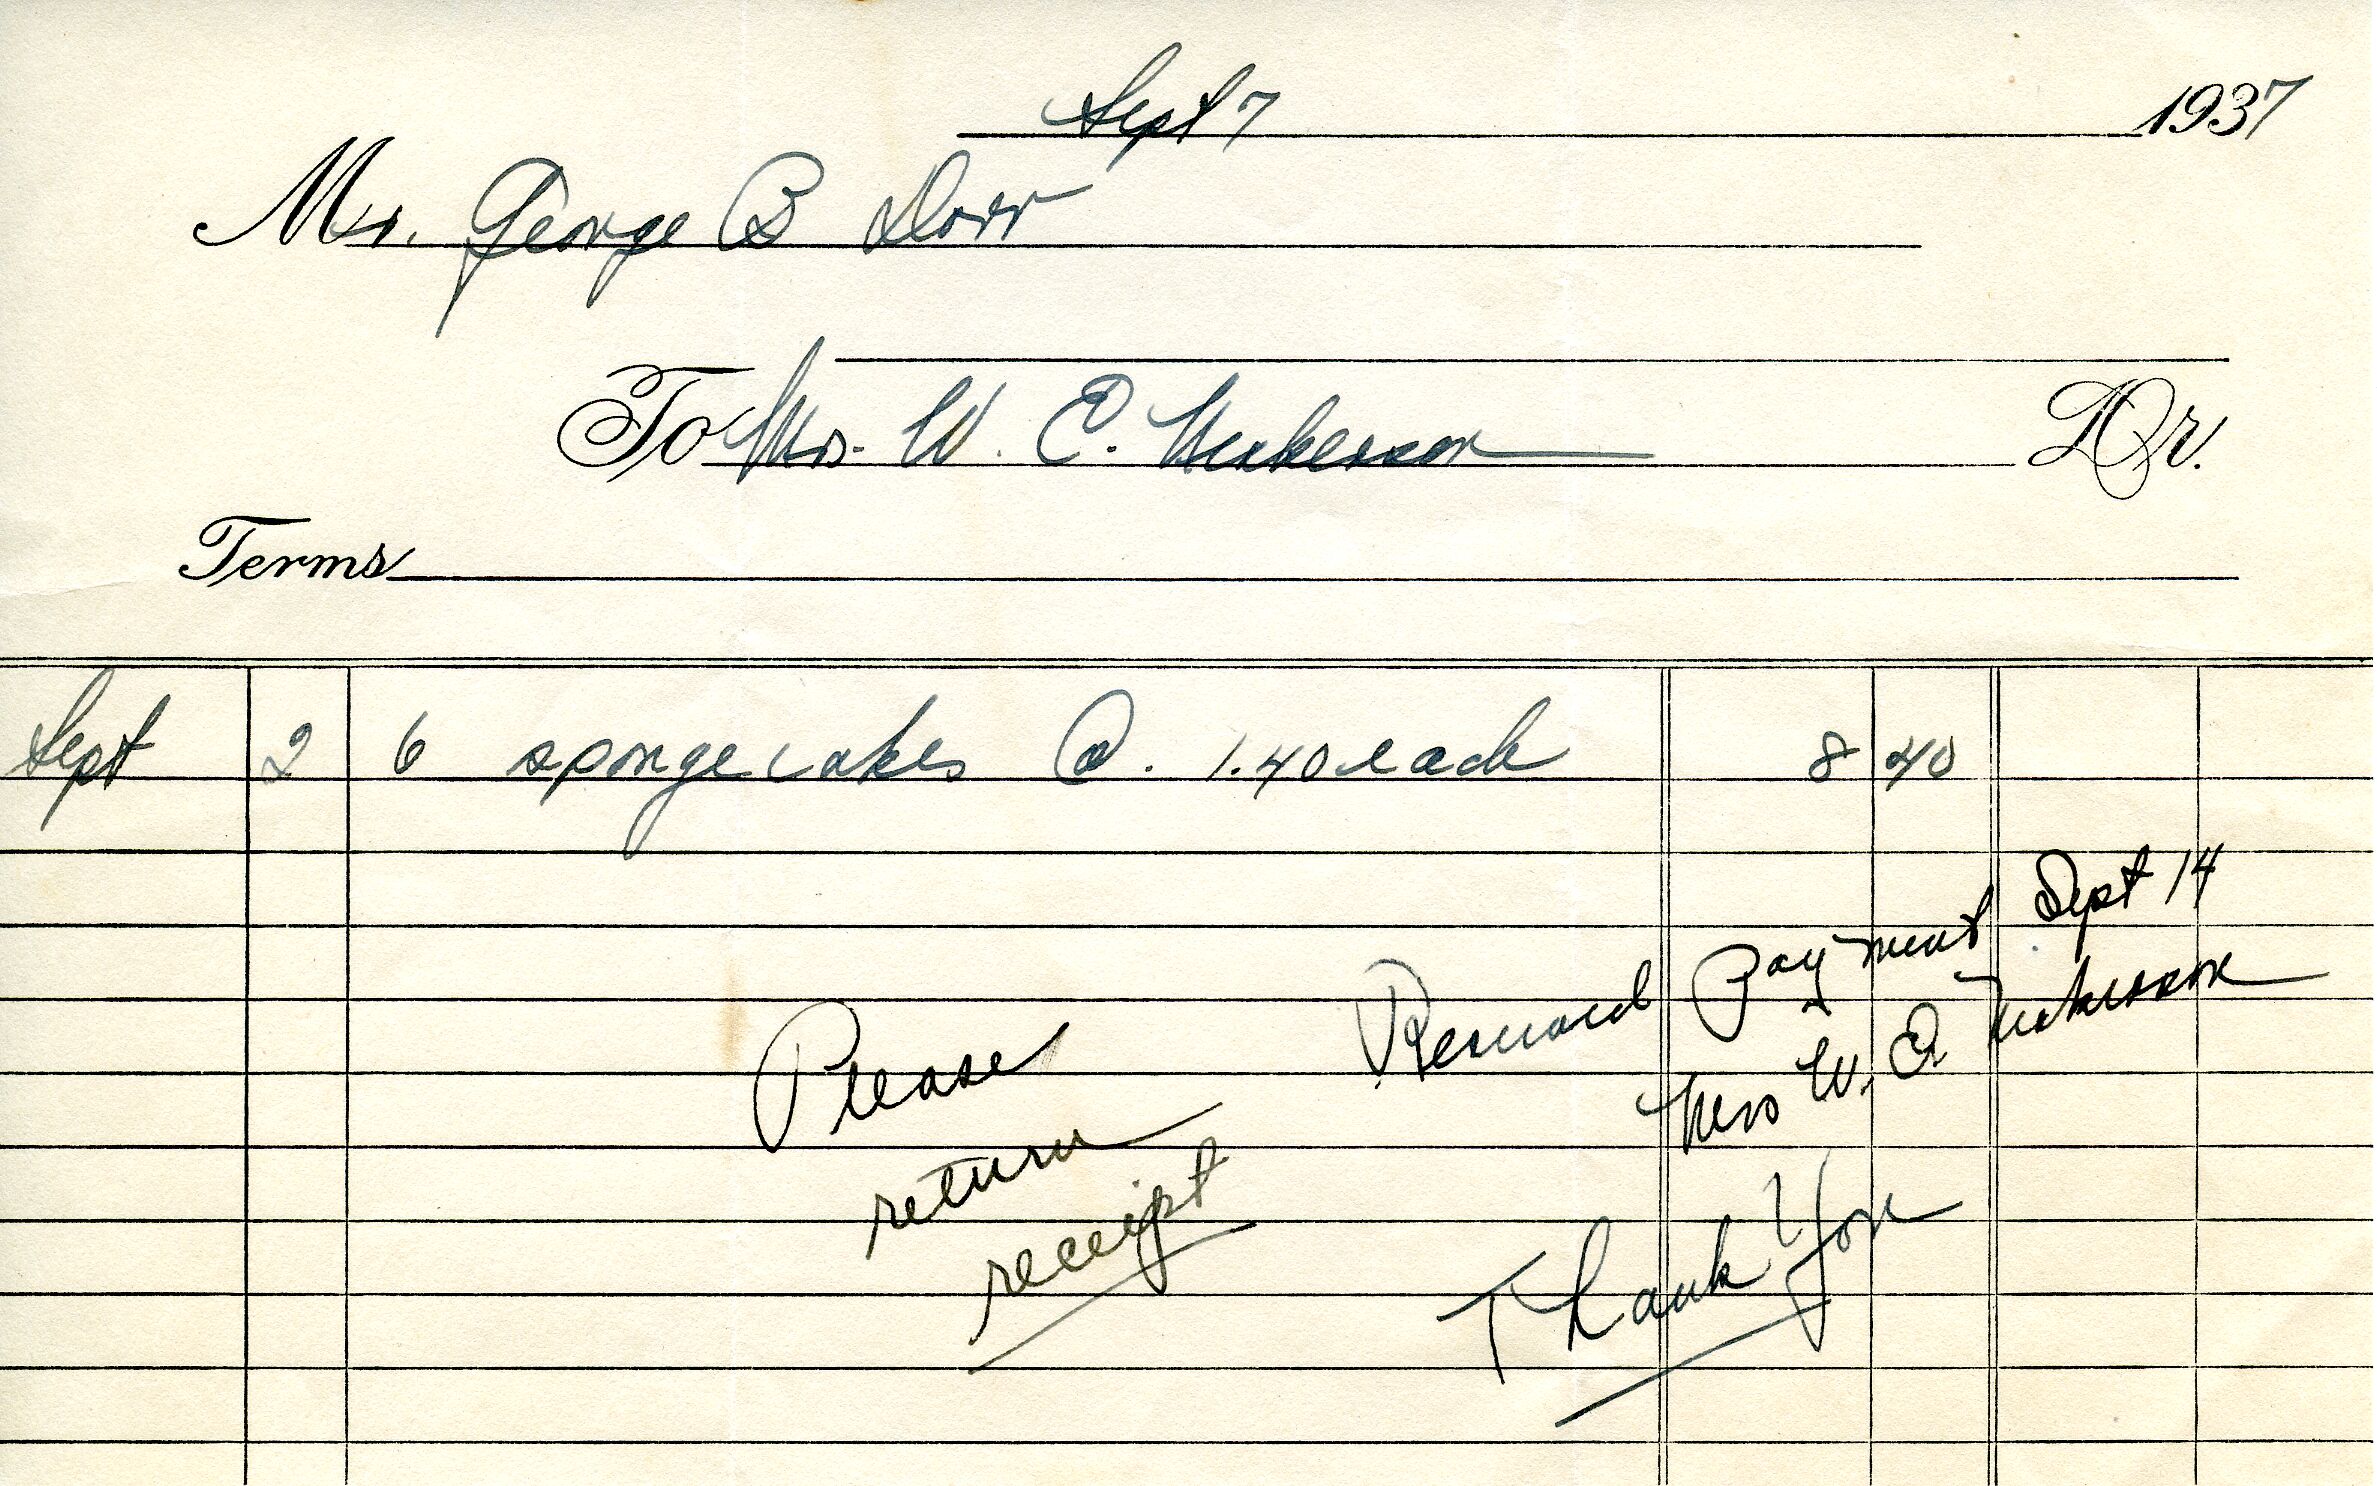 Sept 7 1937
Mr. George B Dorr
To Mrs. W. E. Nickerson Dr.
Terms
Sept 2 6 sponge cakes @. 1.40 each 8 40
Received Payment Sept 14
Mrs W. E. Nickerson
Please
return
receipt
Thank You